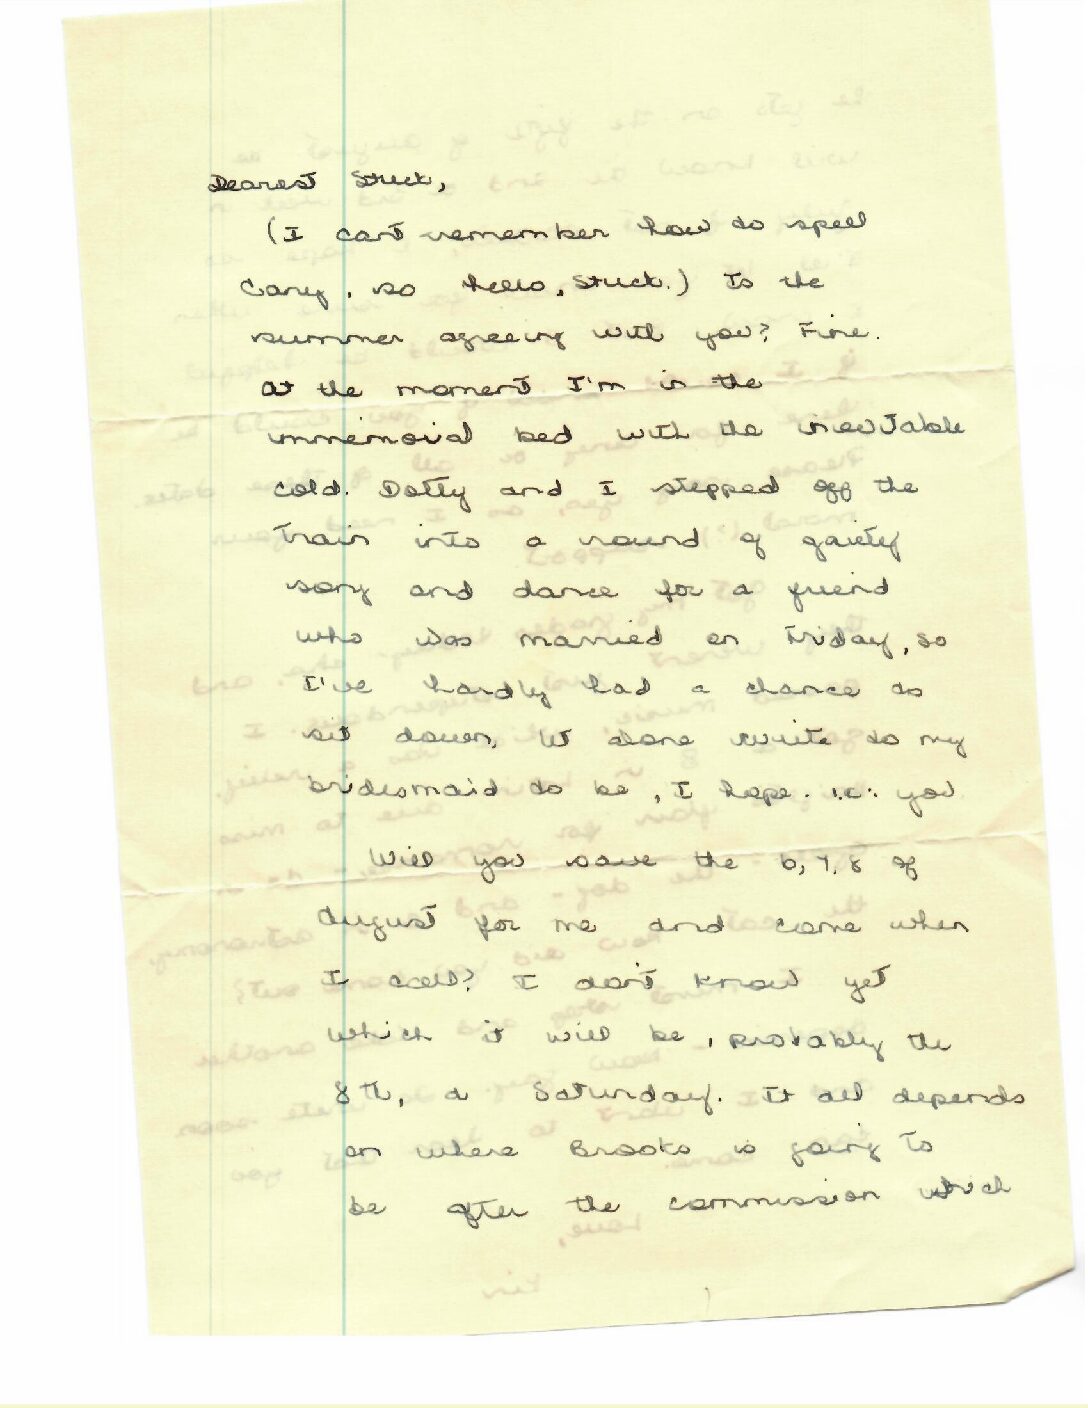 Dearest Stuck,
(I can't remember how to spell
Cary, so hello, Stuck.) Is the
summer agreeing with you? Fine.
At the moment I'm in the
immemorial bed with the inevitable
cold. Dotty and I stepped off the
train into a round of gaiety
song and dance for a friend
who was married on Friday, so
I've hardly had a chance to
sit down, let alone write to my
bridesmaid to be, I hope. i.e. you
Will you save the 6, 7, 8 of
August for me and come when
I call? I don't know yet
which it will be, probably the
8th, a Saturday. It all depends
on where Brooks is going to
be after the commission which